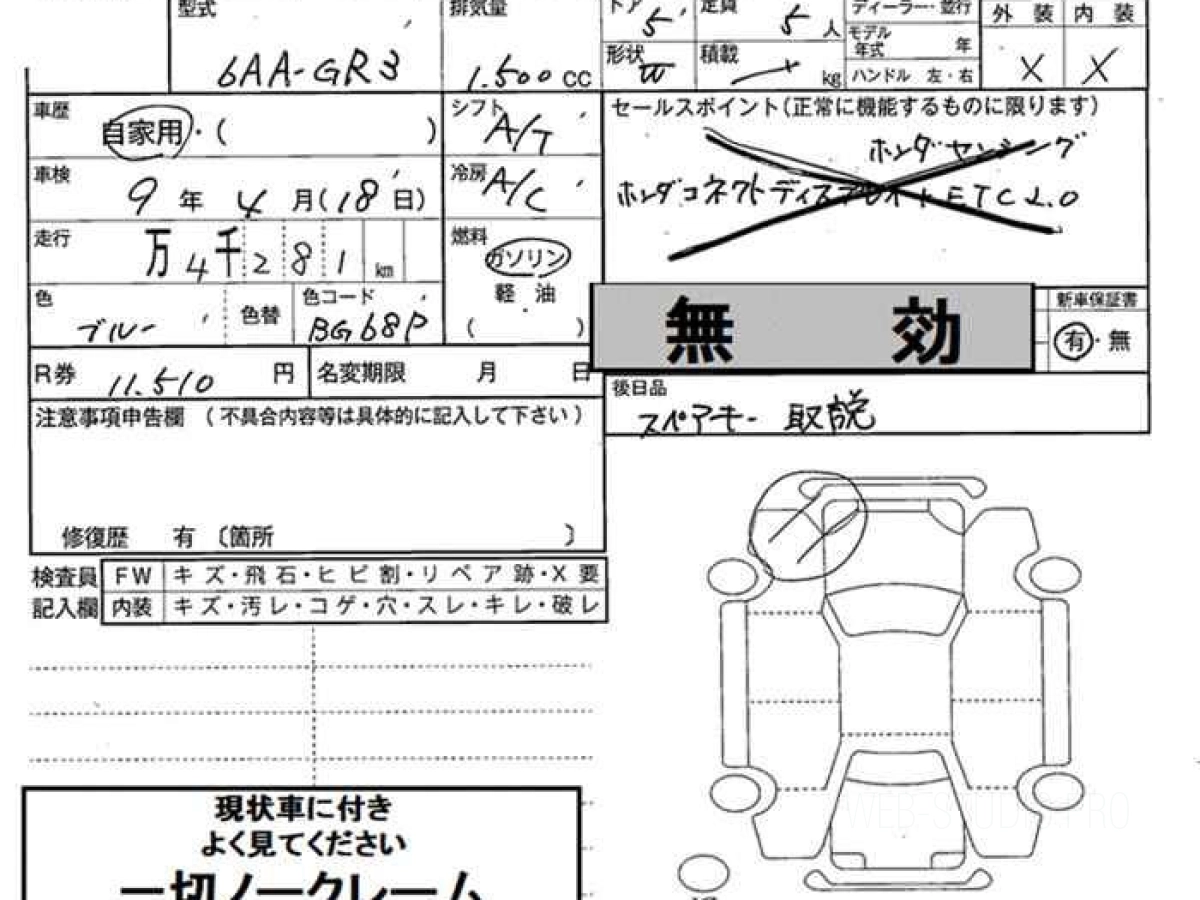 型式 排気量 ドア 5 定員 5 人 ディーラー・並行 外装 内装
6AA-GR3 1.500 cc モデル年式 年 X X
形状 W 積載 kg ハンドル 左・右
車歴 自家用・( ) シフト A/T セールスポイント(正常に機能するものに限ります)
ホンダセンシング
車検 9 年 4 月(18日) 冷房 A/C ホンダコネクトディスプレイ+ETC2.0
走行 万4千281 km 燃料 ガソリン
軽油
( )
色 ブルー 色替 色コード BG68P
無効 新車保証書
有・無
R券 11.510 円 名変期限 月 日
後日品
スペアキー 取説
注意事項申告欄 (不具合内容等は具体的に記入して下さい)
修復歴 有 〔箇所 〕
検査員 FW キズ・飛石・ヒビ割・リペア跡・X要
記入欄 内装 キズ・汚レ・コゲ・穴・スレ・キレ・破レ
現状車に付き
よく見てください
一切ノークレーム